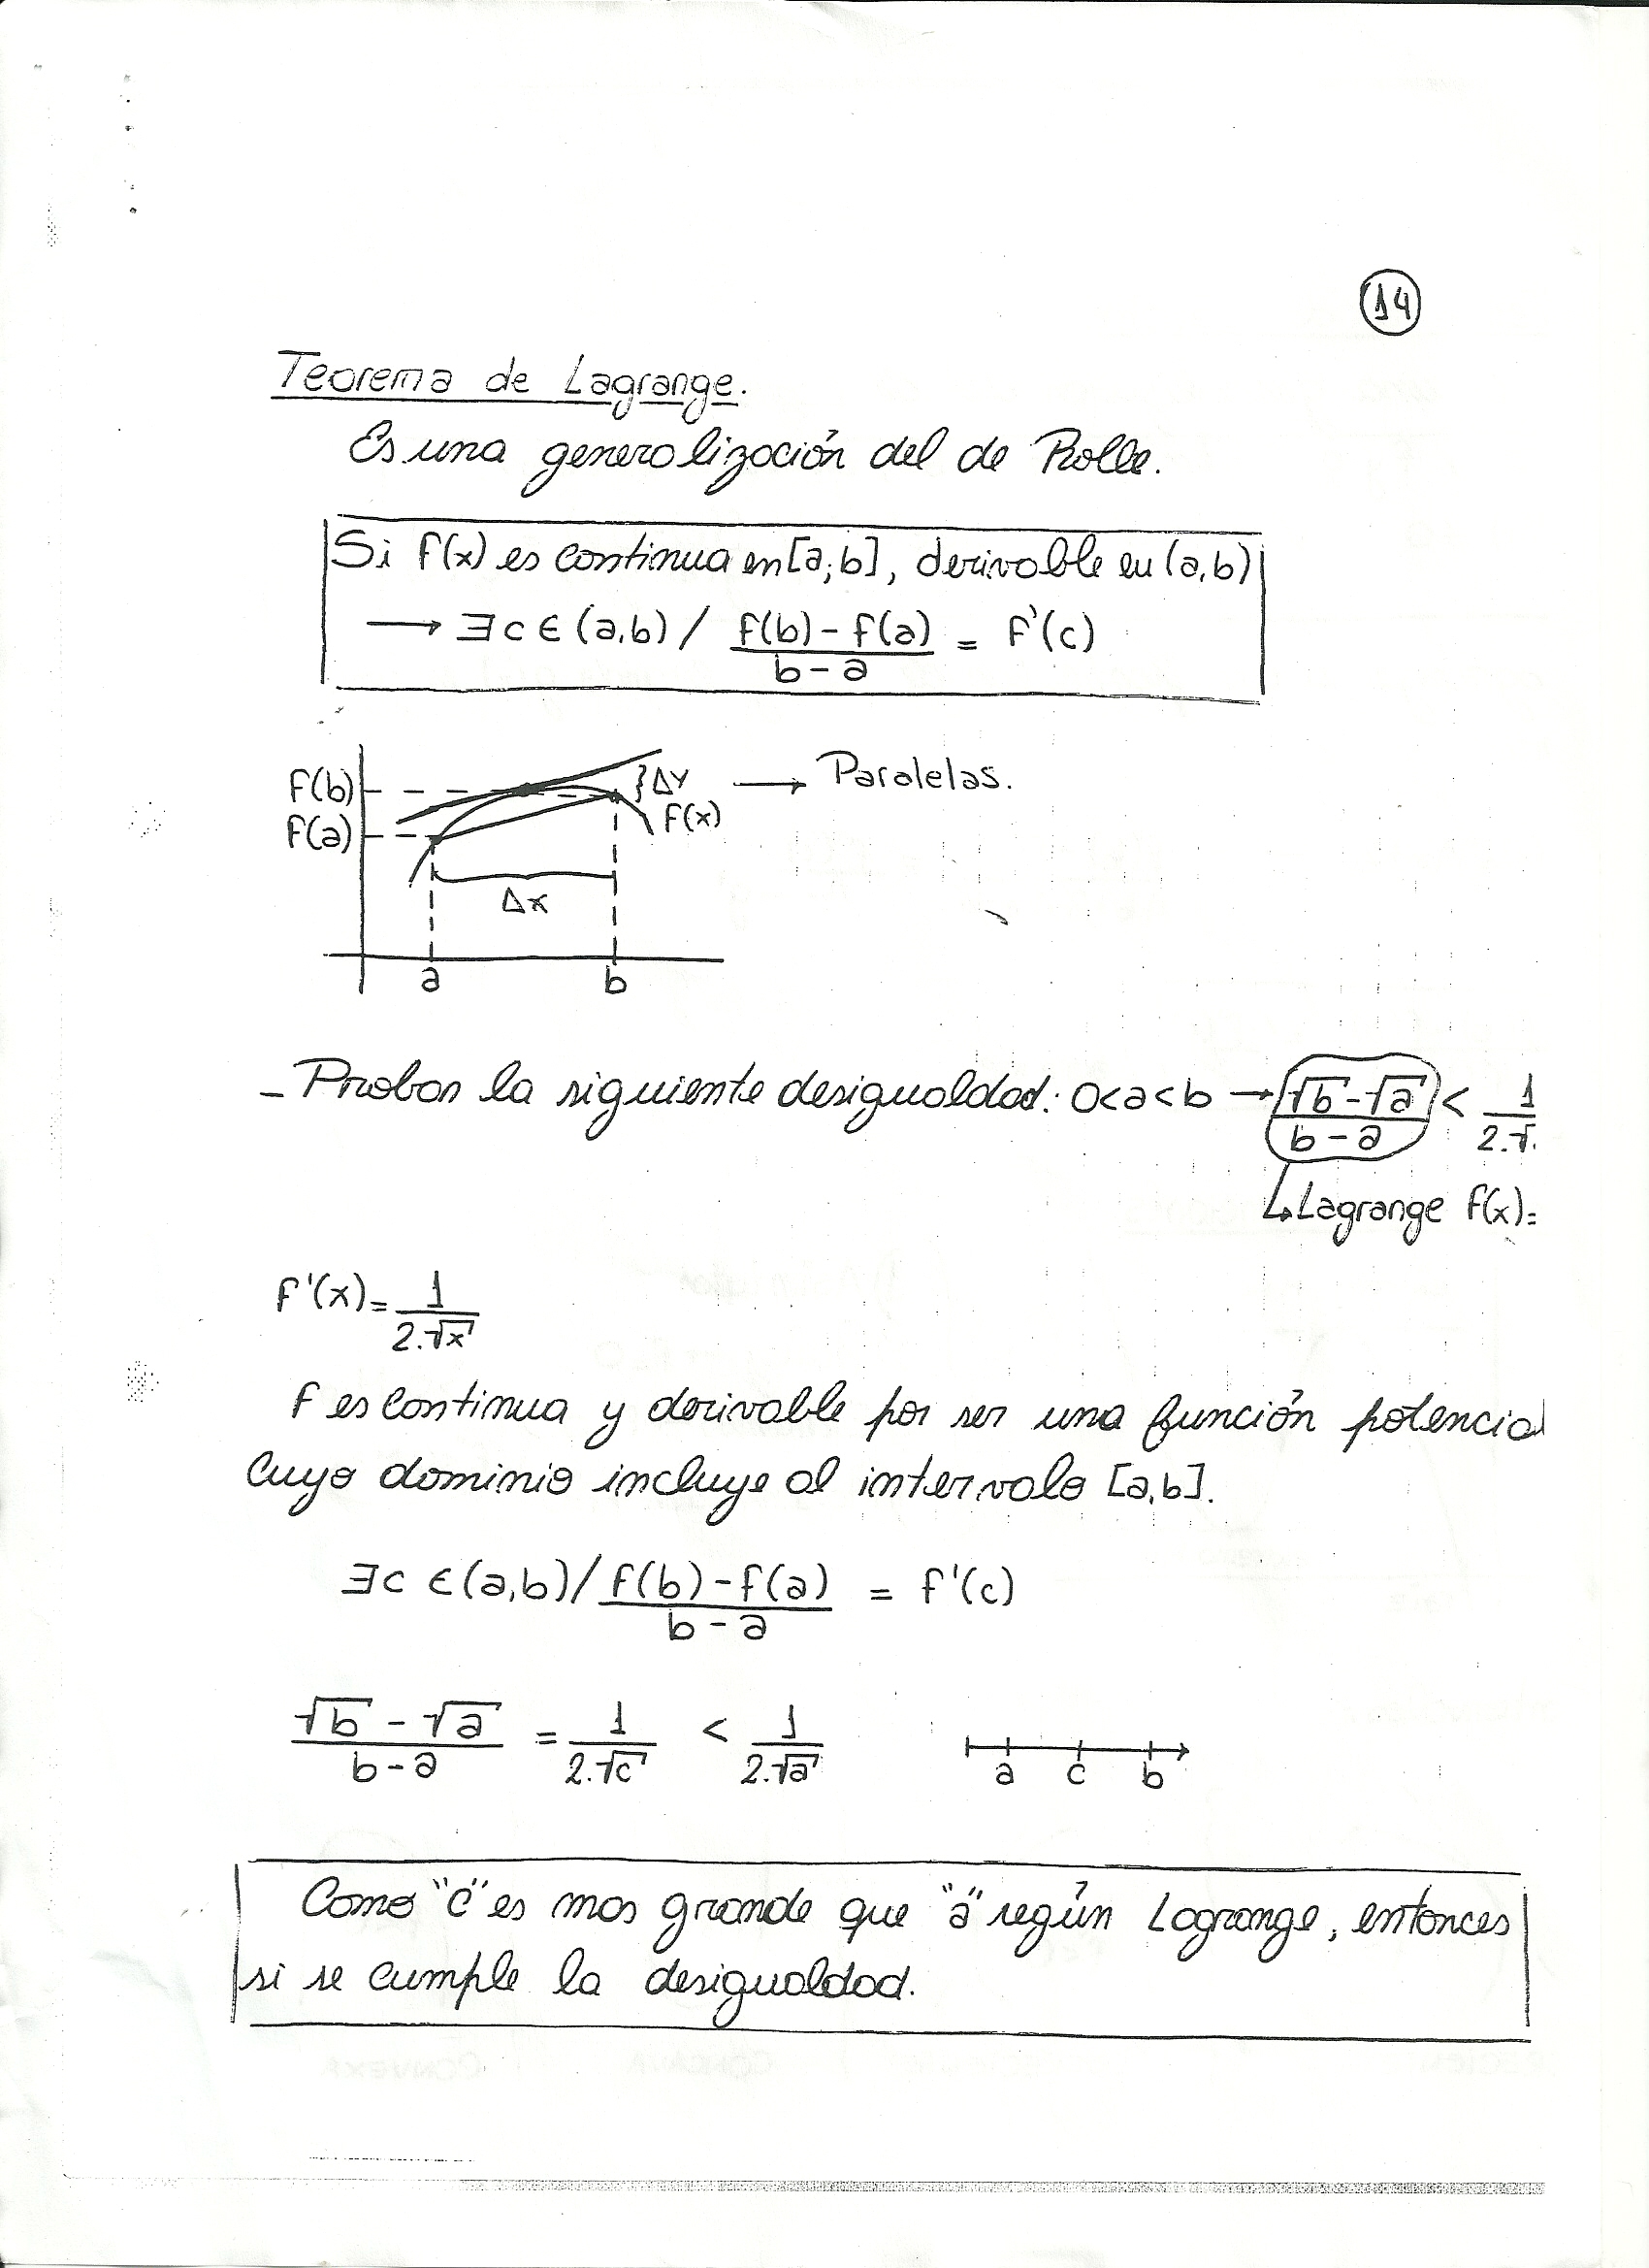 14
Teorema de Lagrange.
Es una generalización del de Rolle.
Si f(x) es continua en [a,b], derivable en (a,b)
⟶ ∃c ∈ (a,b) / (f(b) - f(a))/(b - a) = f'(c)
f(b)
}Δy ⟶ Paralelas.
f(a)
f(x)
Δx
a b
- Probar la siguiente desigualdad: 0<a<b → (√b - √a)/(b - a) < 1/(2.√
↳ Lagrange f(x)=
f'(x) = 1/(2.√x)
f es continua y derivable por ser una función potencial
cuyo dominio incluye al intervalo [a,b].
∃c ∈ (a,b) / (f(b) - f(a))/(b - a) = f'(c)
(√b - √a)/(b - a) = 1/(2.√c) < 1/(2.√a)
a c b
Como "c" es mas grande que "a" según Lagrange, entonces
si se cumple la desigualdad.